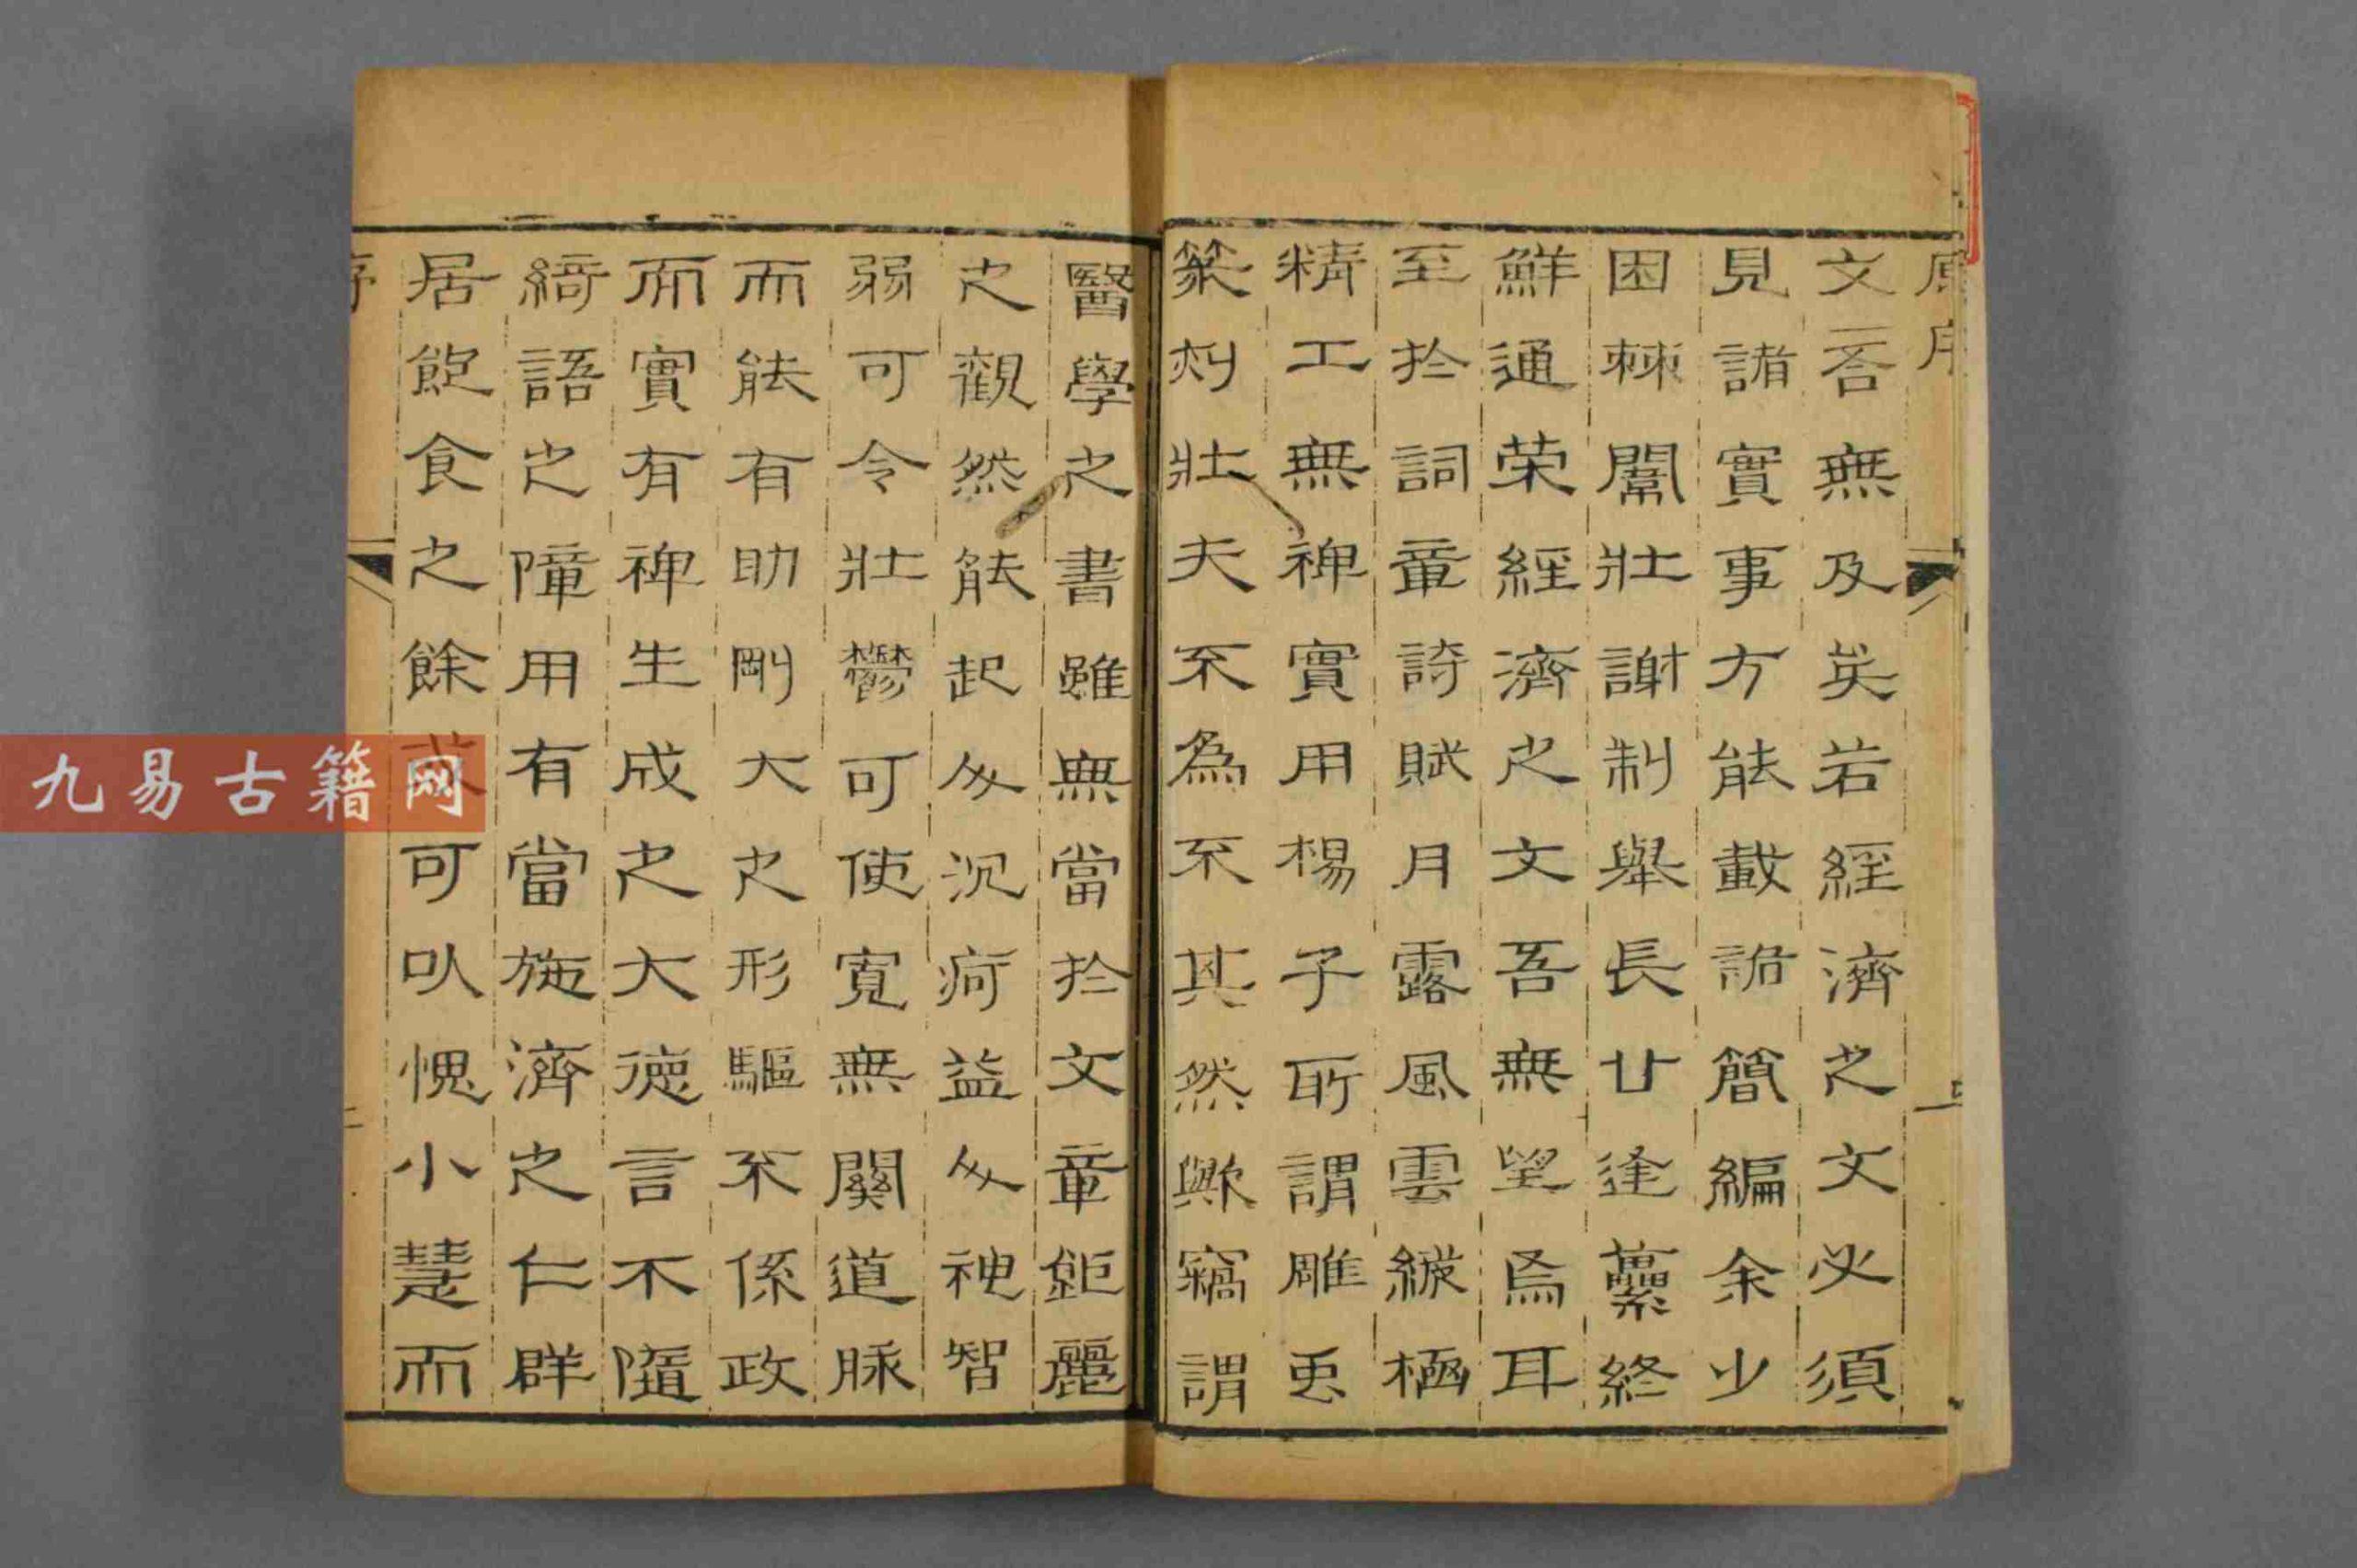 原序
文吝無及矣若經濟之文文必須
見諸實事方能載諸簡編余少
困棘闈壯謝制舉長廿逢藁終
鮮通榮經濟之文吾無望焉耳
至於詞章詩賦月露風雲縱極
精工無裨實用楊子所謂雕蟲
篆刻壯夫不為不其然歟竊謂
醫學之書雖無當於文章鉅麗
之觀然能起人沉疴益人神智
弱可令壯鬱可使寬無關道脉
而能有助剛大之形軀不係政
而實有裨生成之大德言不墮
綺語之障用有當施濟之仁群
居飽食之餘或可以愧小慧而
序
九易古籍网